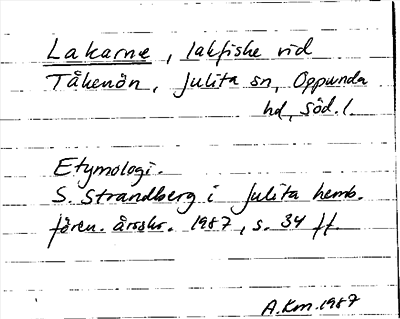 Lakarne, lakfiske vid
Tåkenön, Julita sn, Oppunda
hd, Söd. l.
Etymologi.
S. Strandberg i Julita hemb.
fören. årsskr. 1987, s. 34 ff.
A.Km.1987